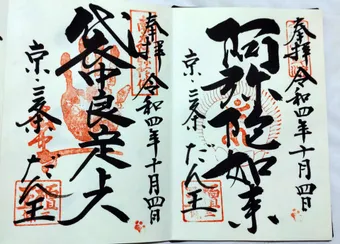 奉拝 令和四年十月四日
阿弥陀如来
京三条 だん王
奉拝 令和四年十月四日
袋中良定上人
京三条 だん王